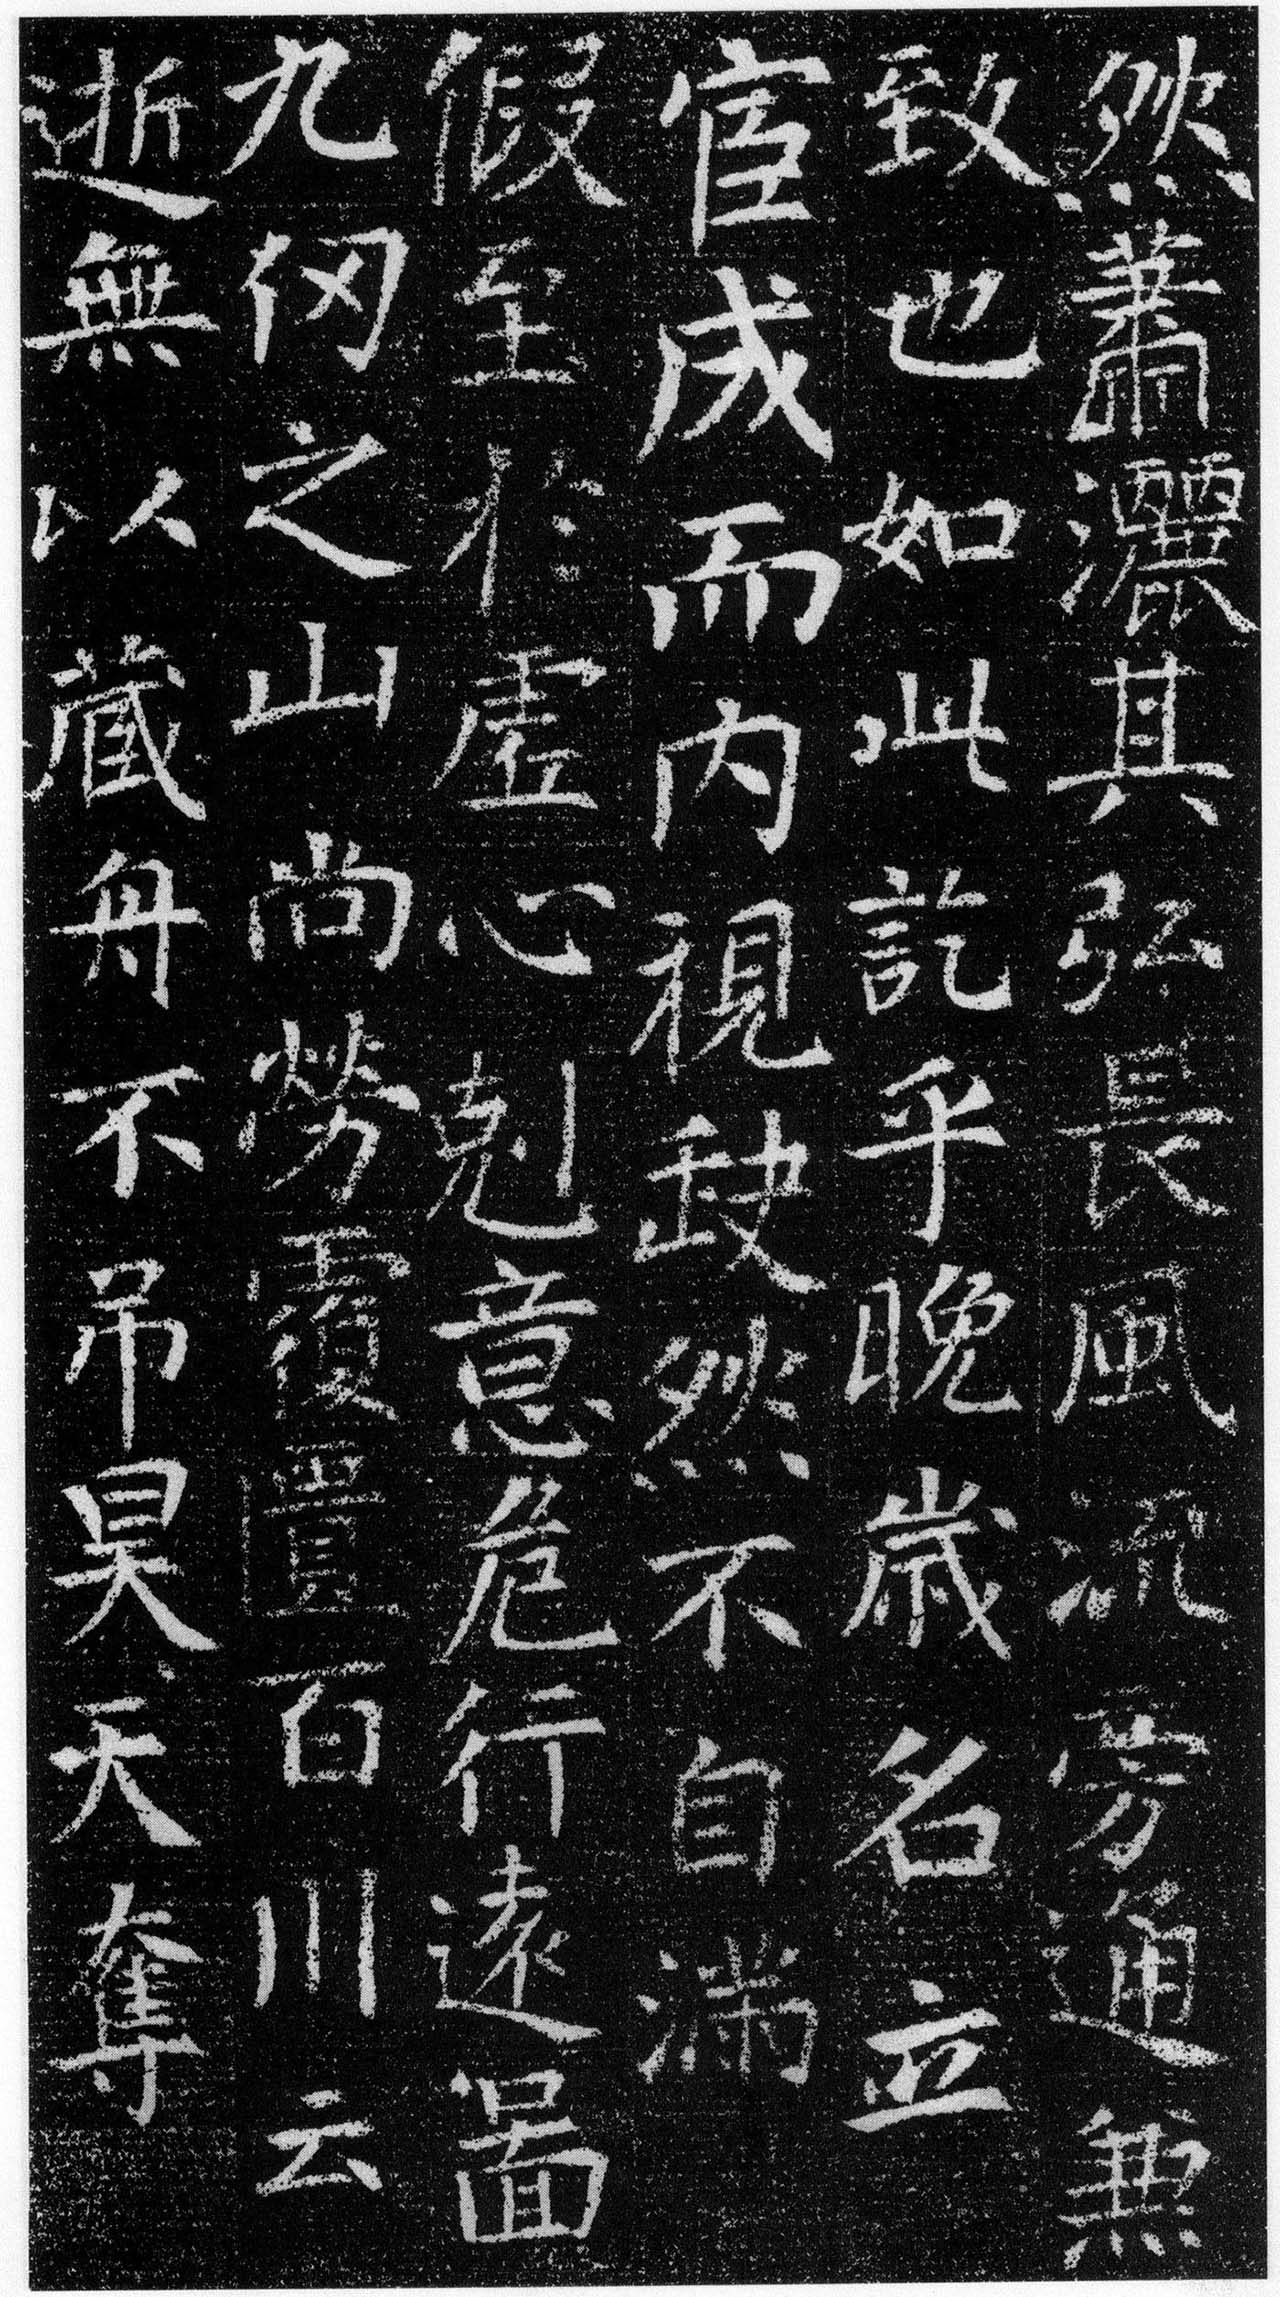 然蕭灑其弘長風流旁通無
致也如此訖乎晚歲名立
宦成而內視缺然不自滿
假至於虛心剋意危行遠啚
九仞之山尚勞覆匱百川云
逝無以藏舟不吊昊天奪